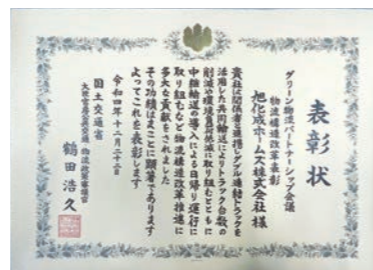 表彰状
グリーン物流パートナーシップ会議
物流構造改革表彰
旭化成ホームズ株式会社様
貴社は関係者と連携しダブル連結トラックを
活用した共同輸送によりトラック台数の
削減や環境負荷低減に取り組むとともに
中継輸送の導入による日帰り運行に
取り組むなど物流構造改革推進に
多大な貢献をされました
その功績はまことに顕著であります
よってこれを表彰します
令和四年十二月二十二日
国土交通省
大臣官房公共交通・物流政策審議官
鶴田浩久